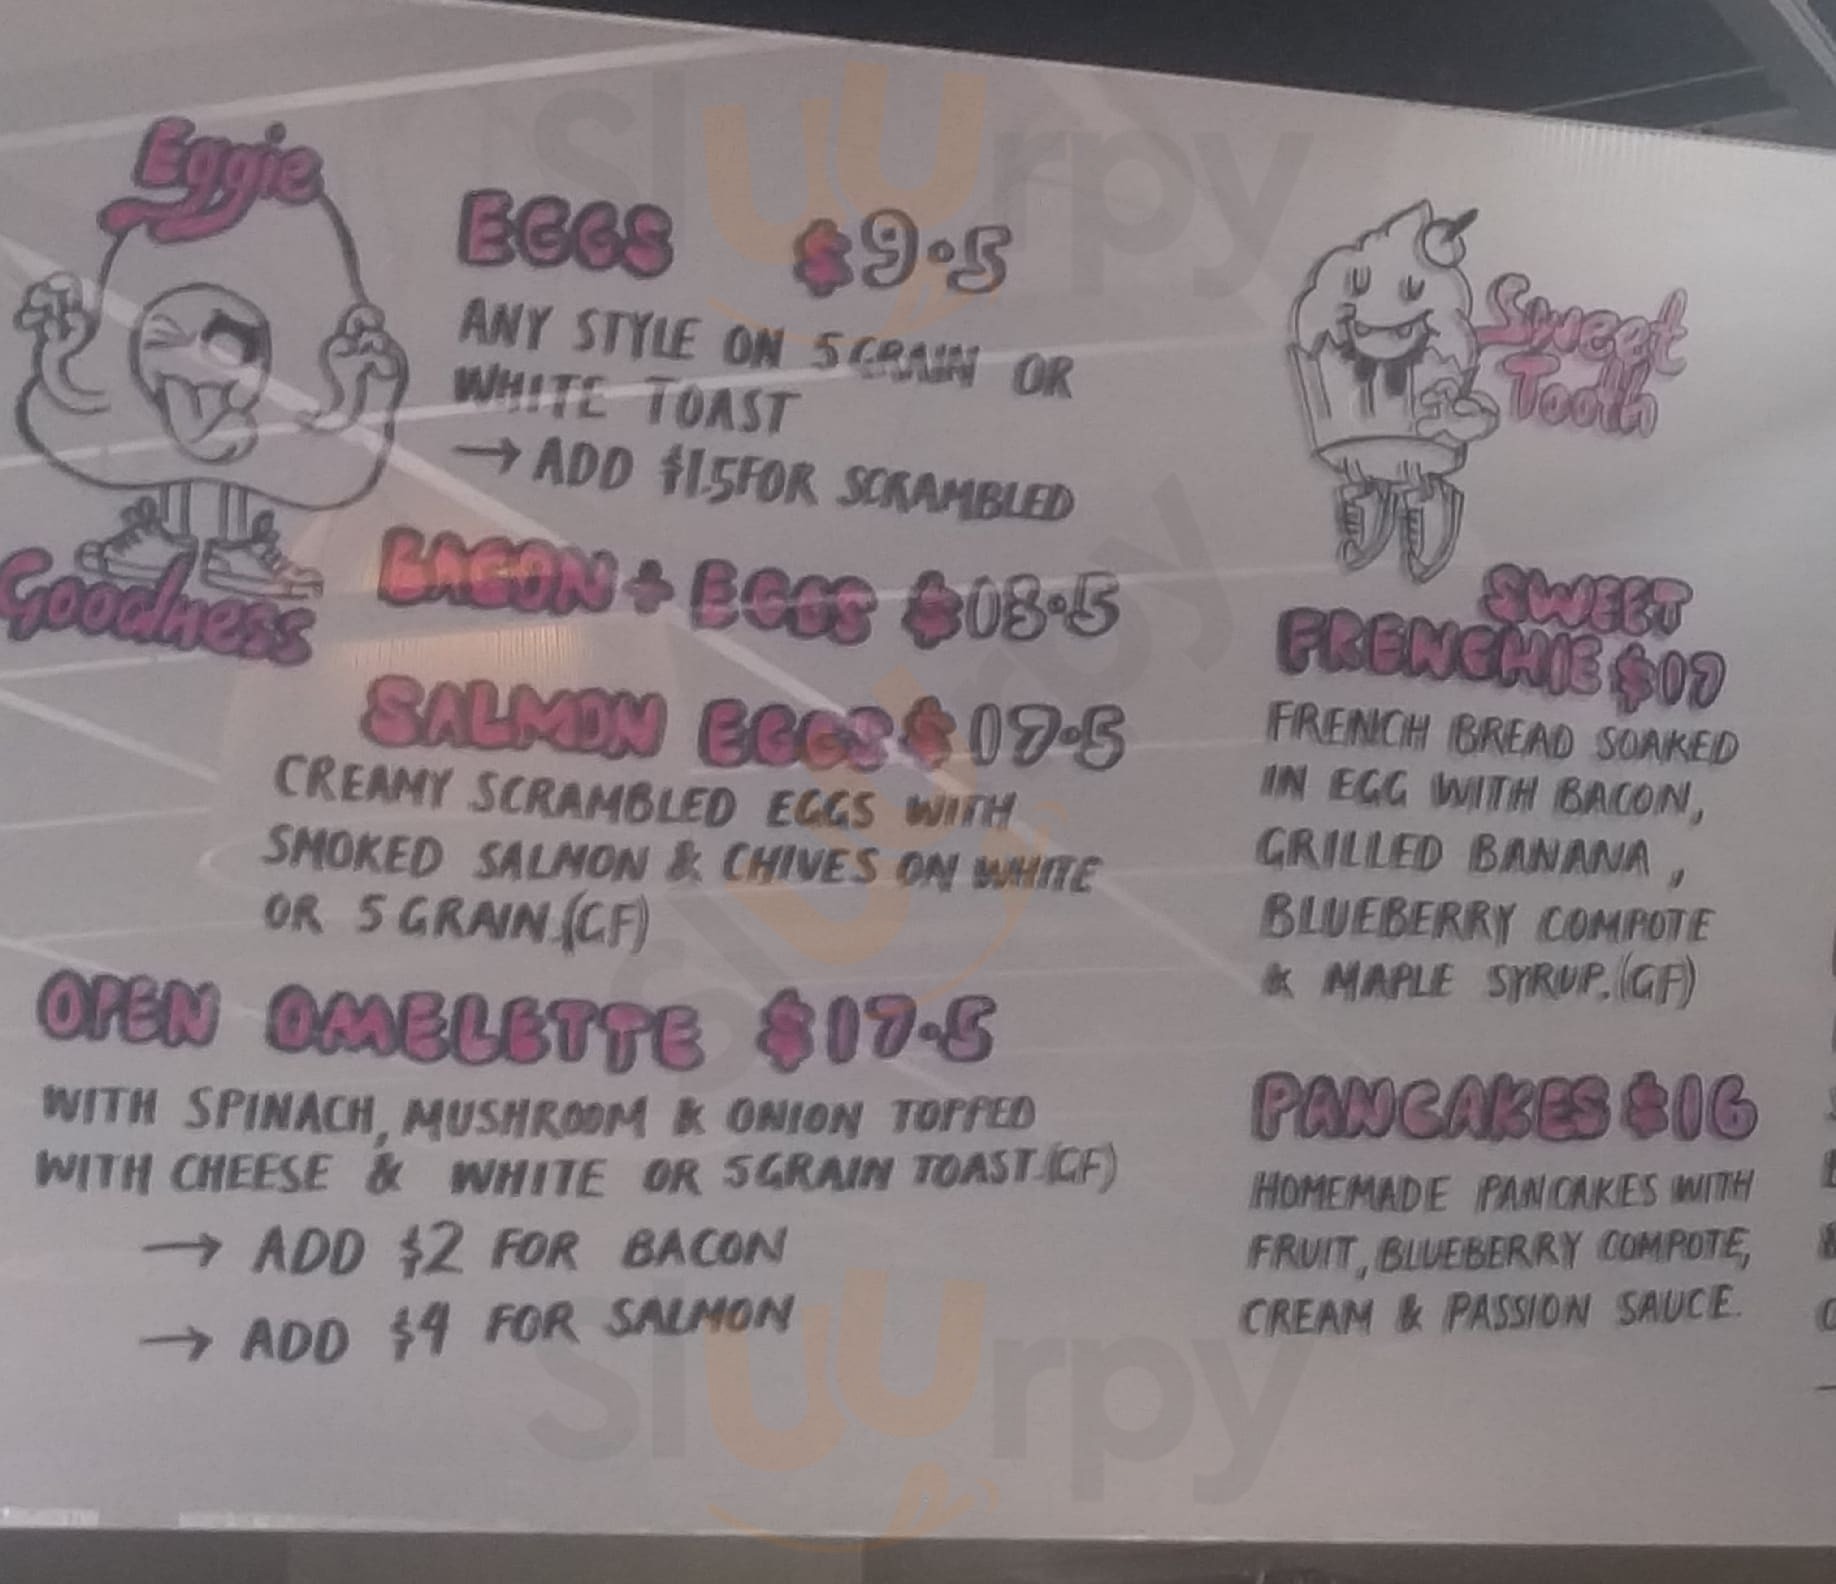 Eggie
Goodness
EGGS $9.5
ANY STYLE ON 5 GRAIN OR
WHITE TOAST
→ ADD $1.5 FOR SCRAMBLED
BACON + EGGS $13.5
SALMON EGGS $17.5
CREAMY SCRAMBLED EGGS WITH
SMOKED SALMON & CHIVES ON WHITE
OR 5 GRAIN.(GF)
OPEN OMELETTE $17.5
WITH SPINACH, MUSHROOM & ONION TOPPED
WITH CHEESE & WHITE OR 5 GRAIN TOAST.(GF)
→ ADD $2 FOR BACON
→ ADD $4 FOR SALMON
Sweet
Tooth
SWEET
FRENCHIE $17
FRENCH BREAD SOAKED
IN EGG WITH BACON,
GRILLED BANANA,
BLUEBERRY COMPOTE
& MAPLE SYRUP.(GF)
PANCAKES $16
HOMEMADE PANCAKES WITH
FRUIT, BLUEBERRY COMPOTE,
CREAM & PASSION SAUCE.
sluurpy
sluurpy
sluurpy